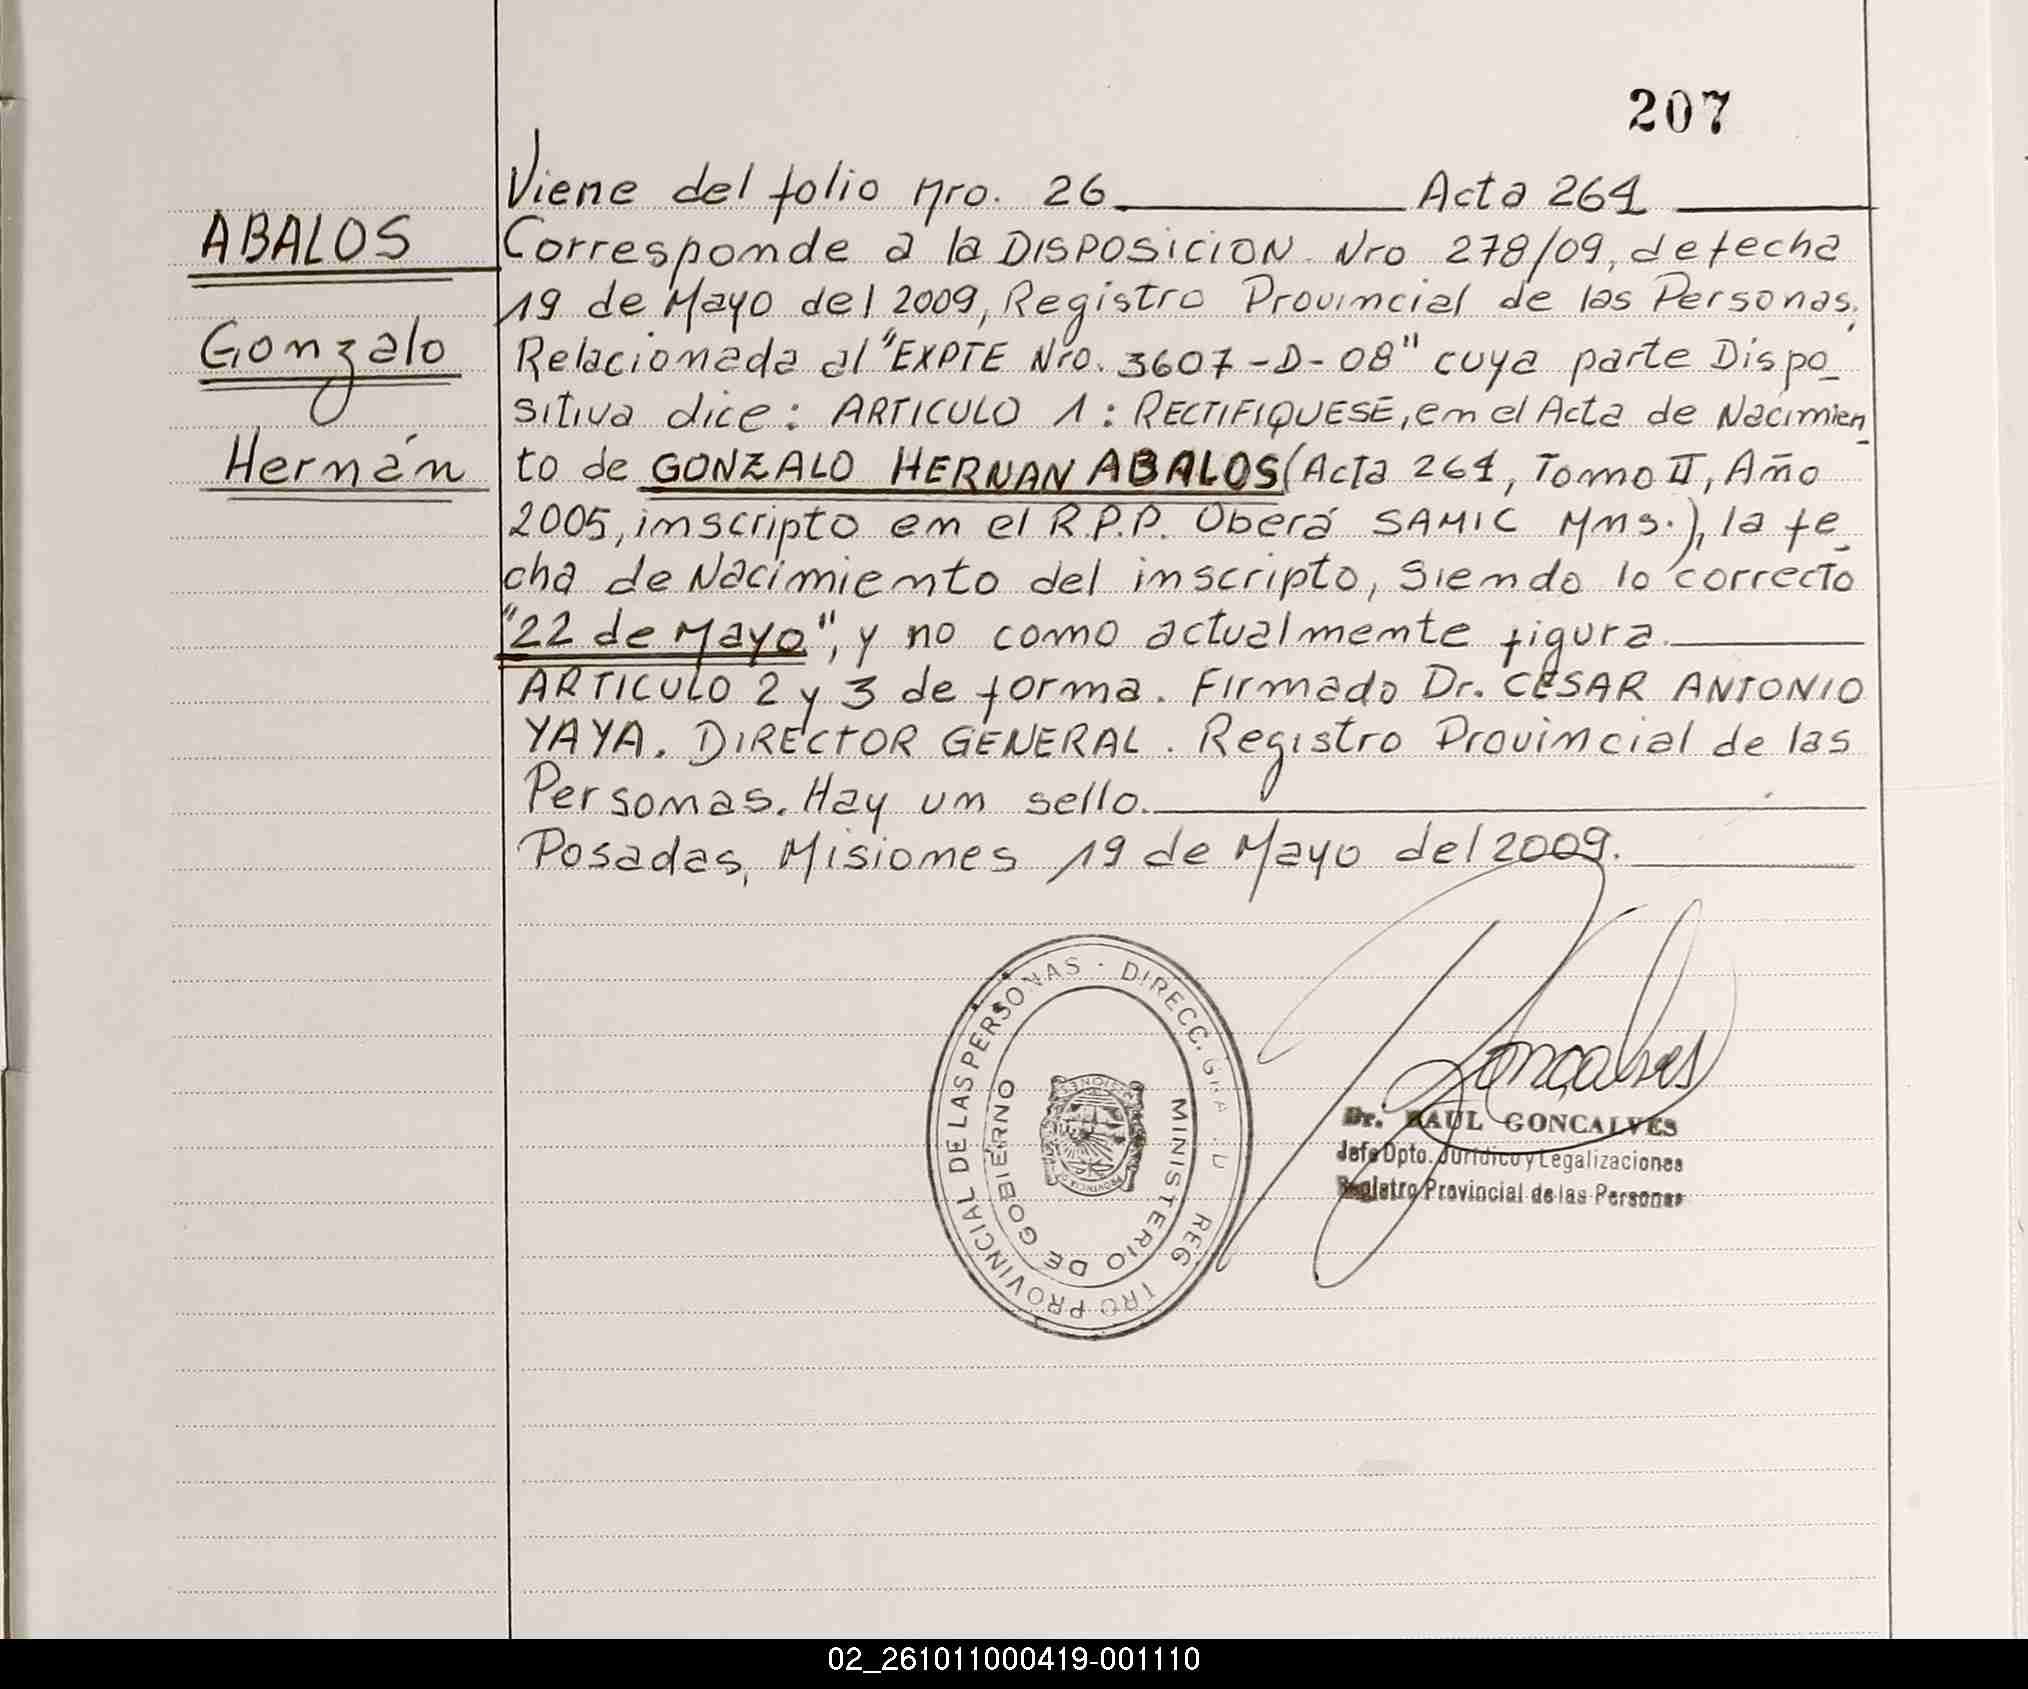 207
Viene del folio Nro. 26 Acta 261
ABALOS
Gonzalo
Hernán
Corresponde a la DISPOSICION Nro 278/09, de fecha
19 de Mayo del 2009, Registro Provincial de las Personas,
Relacionada al "EXPTE Nro. 3607-D-08" cuya parte Dispo_
sitiva dice: ARTICULO 1: RECTIFIQUESE, en el Acta de Nacimien_
to de GONZALO HERNAN ABALOS (Acta 261, Tomo II, Año
2005, inscripto en el R.P.P. Oberá SAMIC Mns.), la fe_
cha de Nacimiento del inscripto, siendo lo correcto
"22 de Mayo", y no como actualmente figura.
ARTICULO 2 y 3 de forma. Firmado Dr. CESAR ANTONIO
YAYA. DIRECTOR GENERAL. Registro Provincial de las
Personas. Hay un sello.
Posadas, Misiones 19 de Mayo del 2009.
REG TRO PROVINCIAL DE LAS PERSONAS · DIRECC. GRA
MINISTERIO DE GOBIERNO
Goncalves
Dr. RAUL GONCALVES
Jefe Dpto. Jurídico y Legalizaciones
Registro Provincial de las Personas
02_261011000419-001110